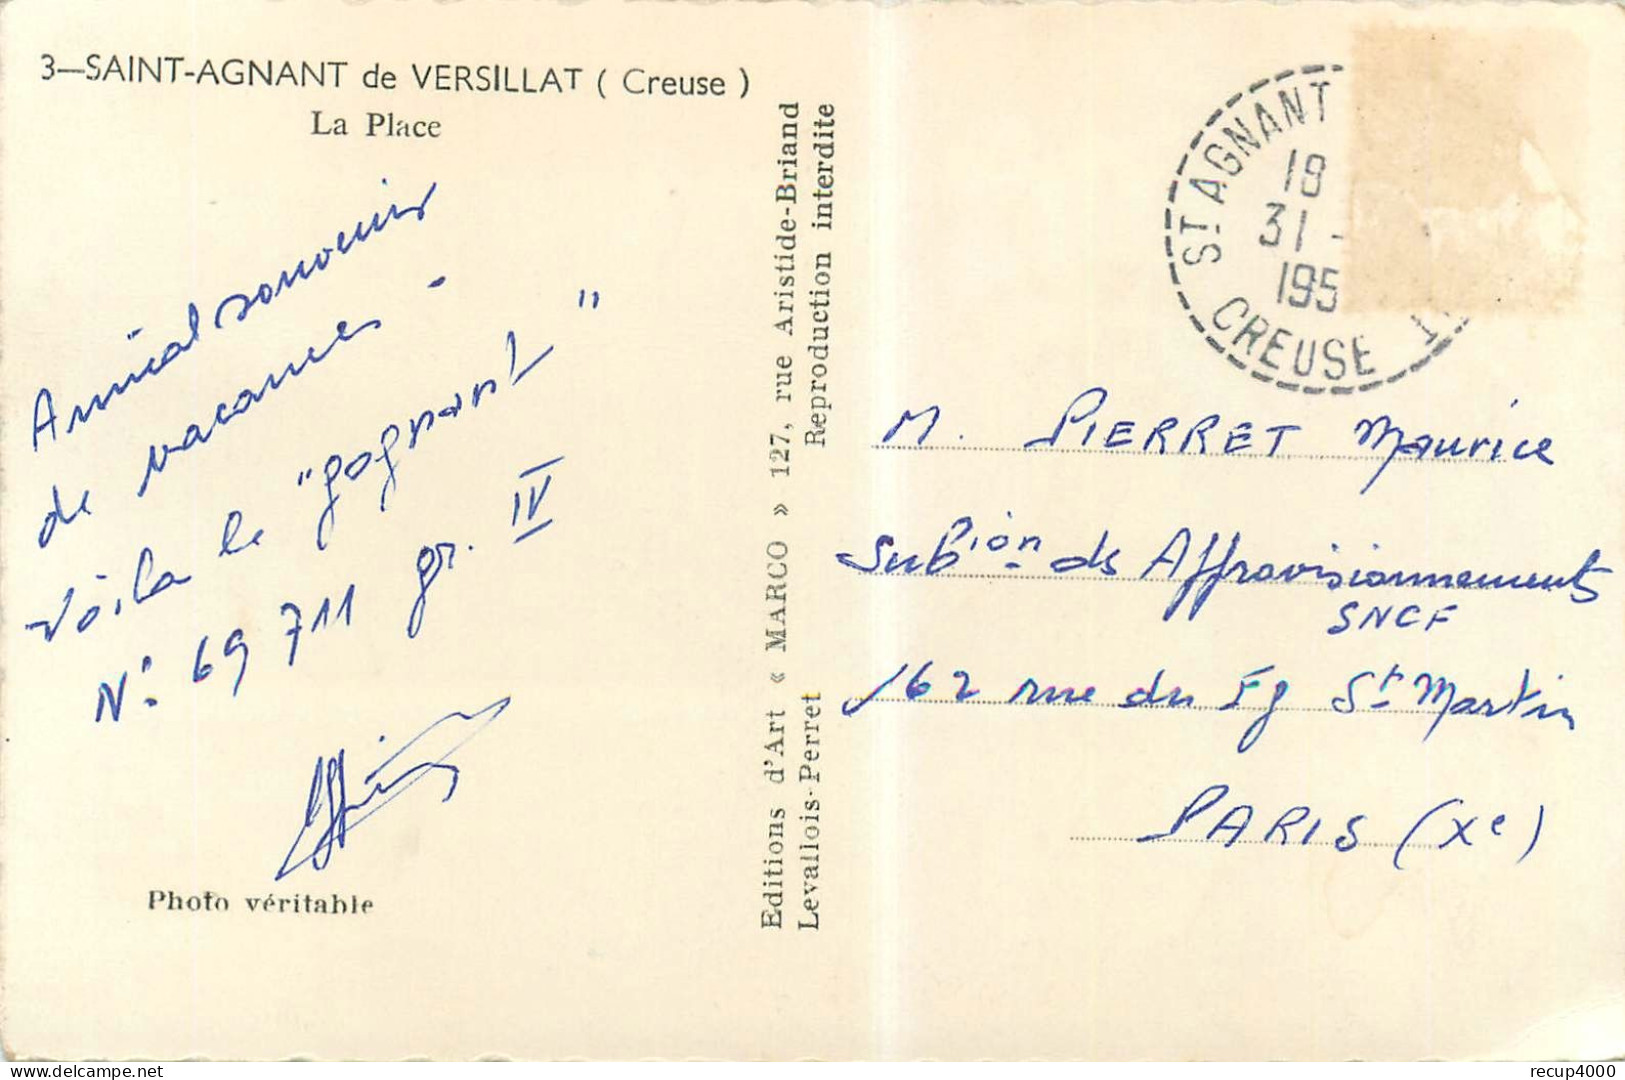 3—SAINT-AGNANT de VERSILLAT ( Creuse )
La Place
Amical souvenir
de vacances -
Voila le "gagnant"
N° 69 711 gr. IV
Photo véritable
Editions d'Art « MARCO » 127, rue Aristide-Briand
Levallois-Perret Reproduction interdite
ST AGNANT
18
31 -
195
CREUSE
M. PIERRET Maurice
Subion de Approvisionnements
SNCF
162 rue du Fg St Martin
PARIS (Xe)
delcampe.net
recup4000